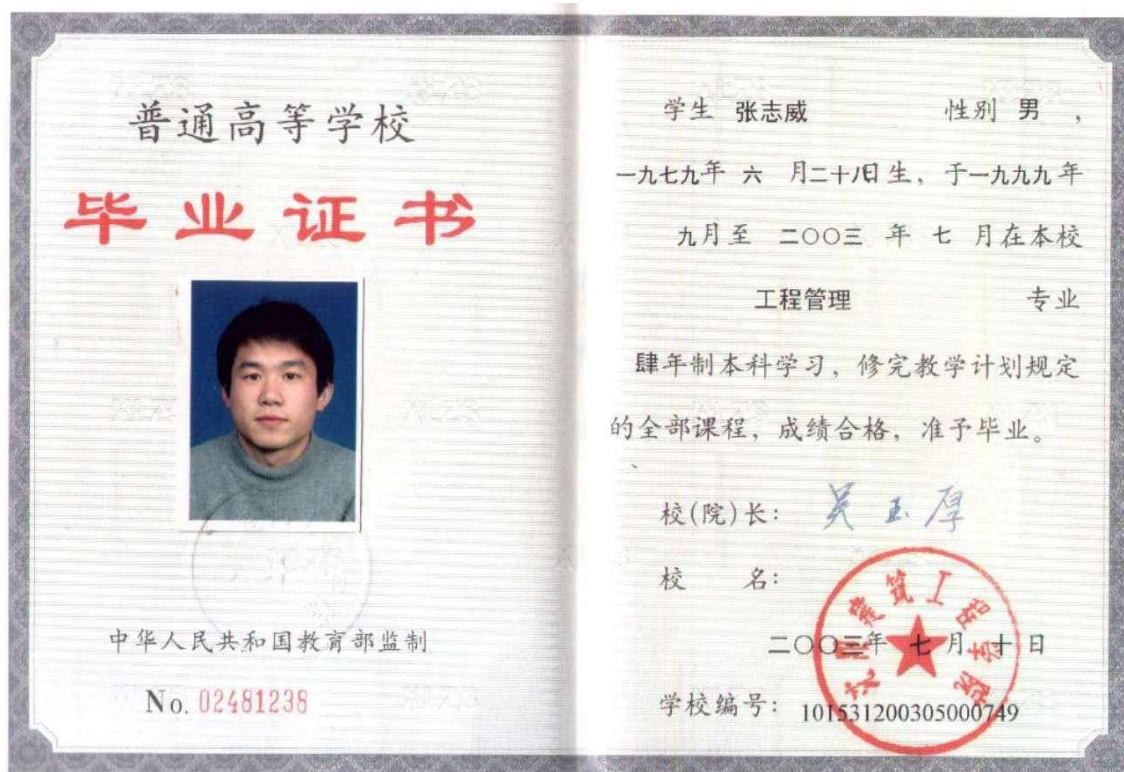 普通高等学校
毕业证书
中华人民共和国教育部监制
No. 02481238
学生 张志威 性别 男,
一九七九年 六 月二十八日生, 于一九九九年
九月至 二〇〇三 年 七 月在本校
工程管理 专业
肆年制本科学习, 修完教学计划规定
的全部课程, 成绩合格, 准予毕业。
校(院)长: 吴玉厚
校 名:
建筑工程学院
二〇〇三年 七 月 十 日
学校编号: 101531200305000749